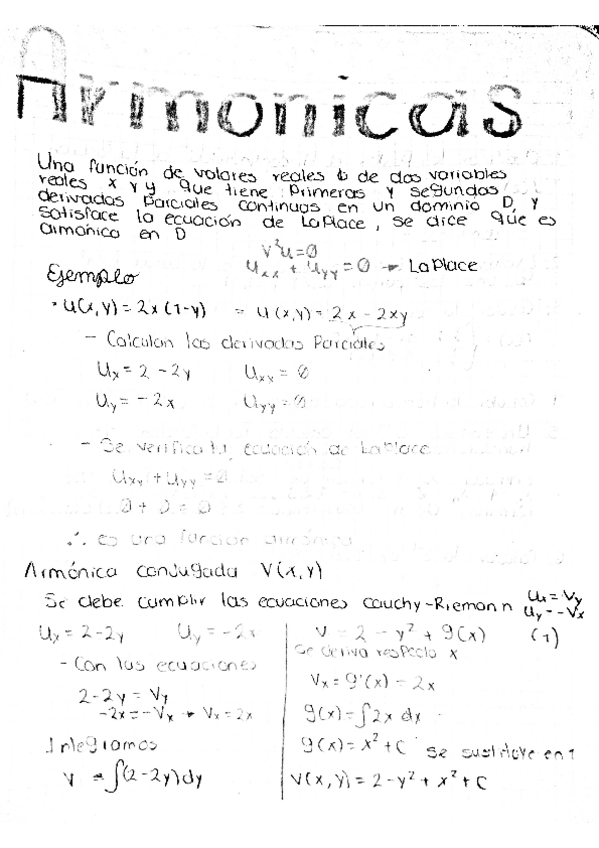 Armonicas
Una función de valores reales de dos variables
reales x y y que tiene primeras y segundas
derivadas parciales continuas en un dominio D, y
satisface la ecuación de LaPlace, se dice que es
armónica en D
∇²u=0
Uxx + Uyy = 0 → LaPlace
Ejemplo
• U(x,y) = 2x(1-y) = U(x,y) = 2x - 2xy
- Calculan las derivadas Parciales
Ux = 2 - 2y Uxx = 0
Uy = -2x Uyy = 0
- Se verifica la ecuación de LaPlace
Uxx + Uyy = 0
0 + 0 = 0
∴ es una función armónica
Armónica conjugada V(x,y)
Se debe cumplir las ecuaciones cauchy-Riemann Ux = Vy
Uy = -Vx
Ux = 2-2y Uy = -2x
- Con las ecuaciones
2-2y = Vy
-2x = -Vx → Vx = 2x
Integramos
V = ∫(2-2y)dy
V = 2 - y² + g(x) (1)
Se deriva respecto x
Vx = g'(x) = 2x
g(x) = ∫2x dx
g(x) = x² + C Se sustituye en 1
V(x,y) = 2 - y² + x² + C